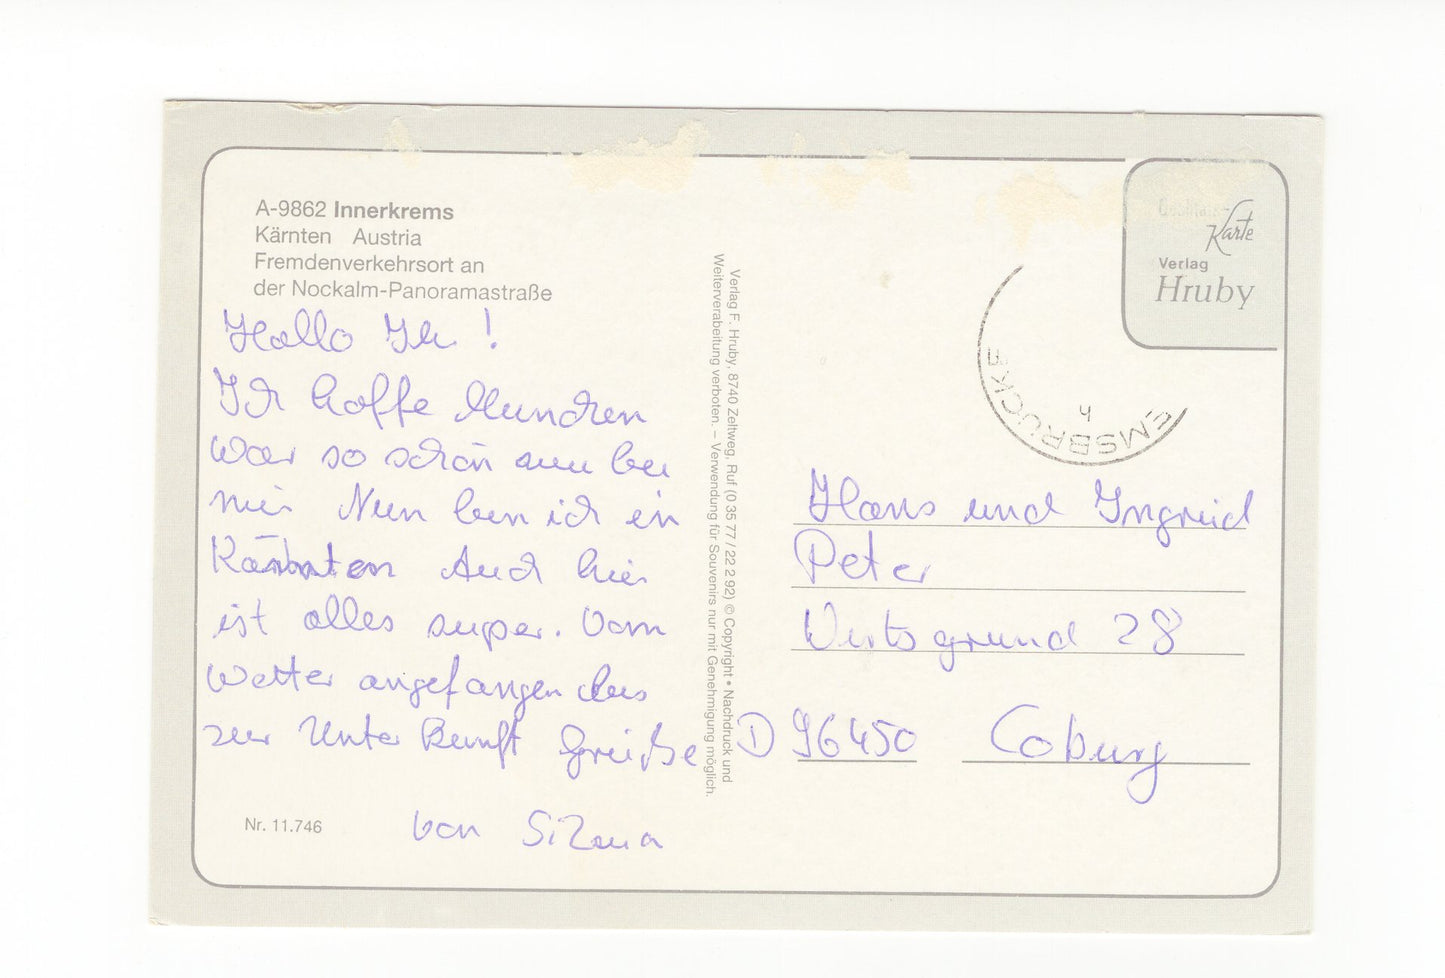 A-9862 Innerkrems
Kärnten Austria
Fremdenverkehrsort an
der Nockalm-Panoramastraße
Hallo Ihr !
Ich hoffe Munchen
war so schön wie bei
mir Nun bin ich in
Kärnten Auch hier
ist alles super. Vom
Wetter angefangen bis
zur Unter Kunft Grüße
von
Nr. 11.746
Verlag F. Hruby, 8740 Zeltweg, Ruf (0 35 77 / 22 2 92) © Copyright • Nachdruck und
Weiterverabeitung verboten. – Verwendung für Souvenirs nur mit Genehmigung möglich.
Karte
Verlag
Hruby
EMSBRÜCKE
Hans und Ingrid
Peter
grund 28
D 96450 Coburg